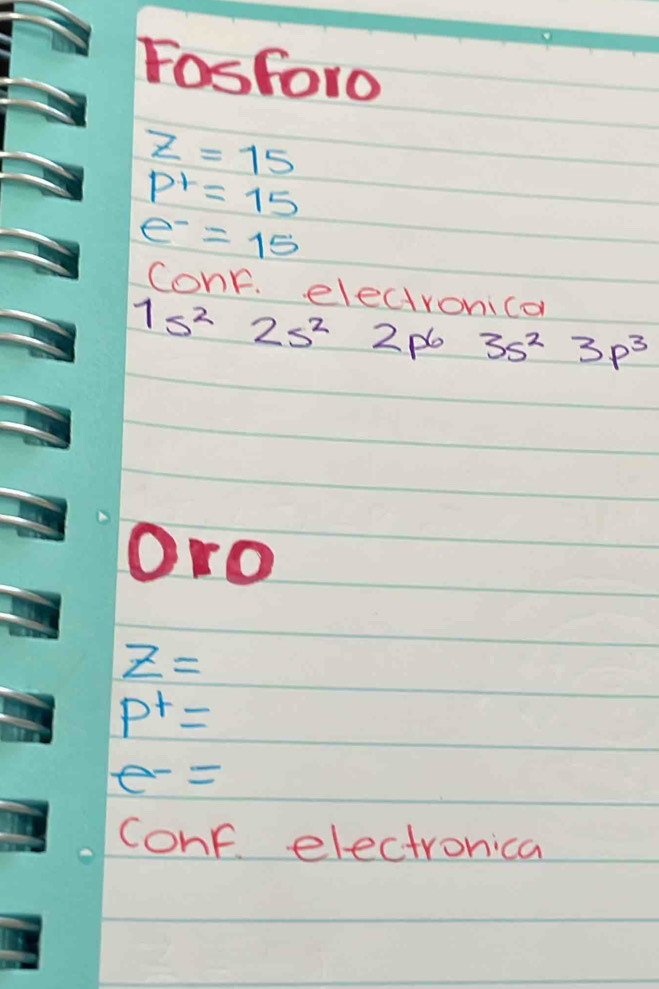 Fosforo
Z = 15
p⁺ = 15
e⁻ = 15
Conf. electronica
1s² 2s² 2p⁶ 3s² 3p³
Oro
Z =
p⁺ =
e⁻ =
Conf. electronica